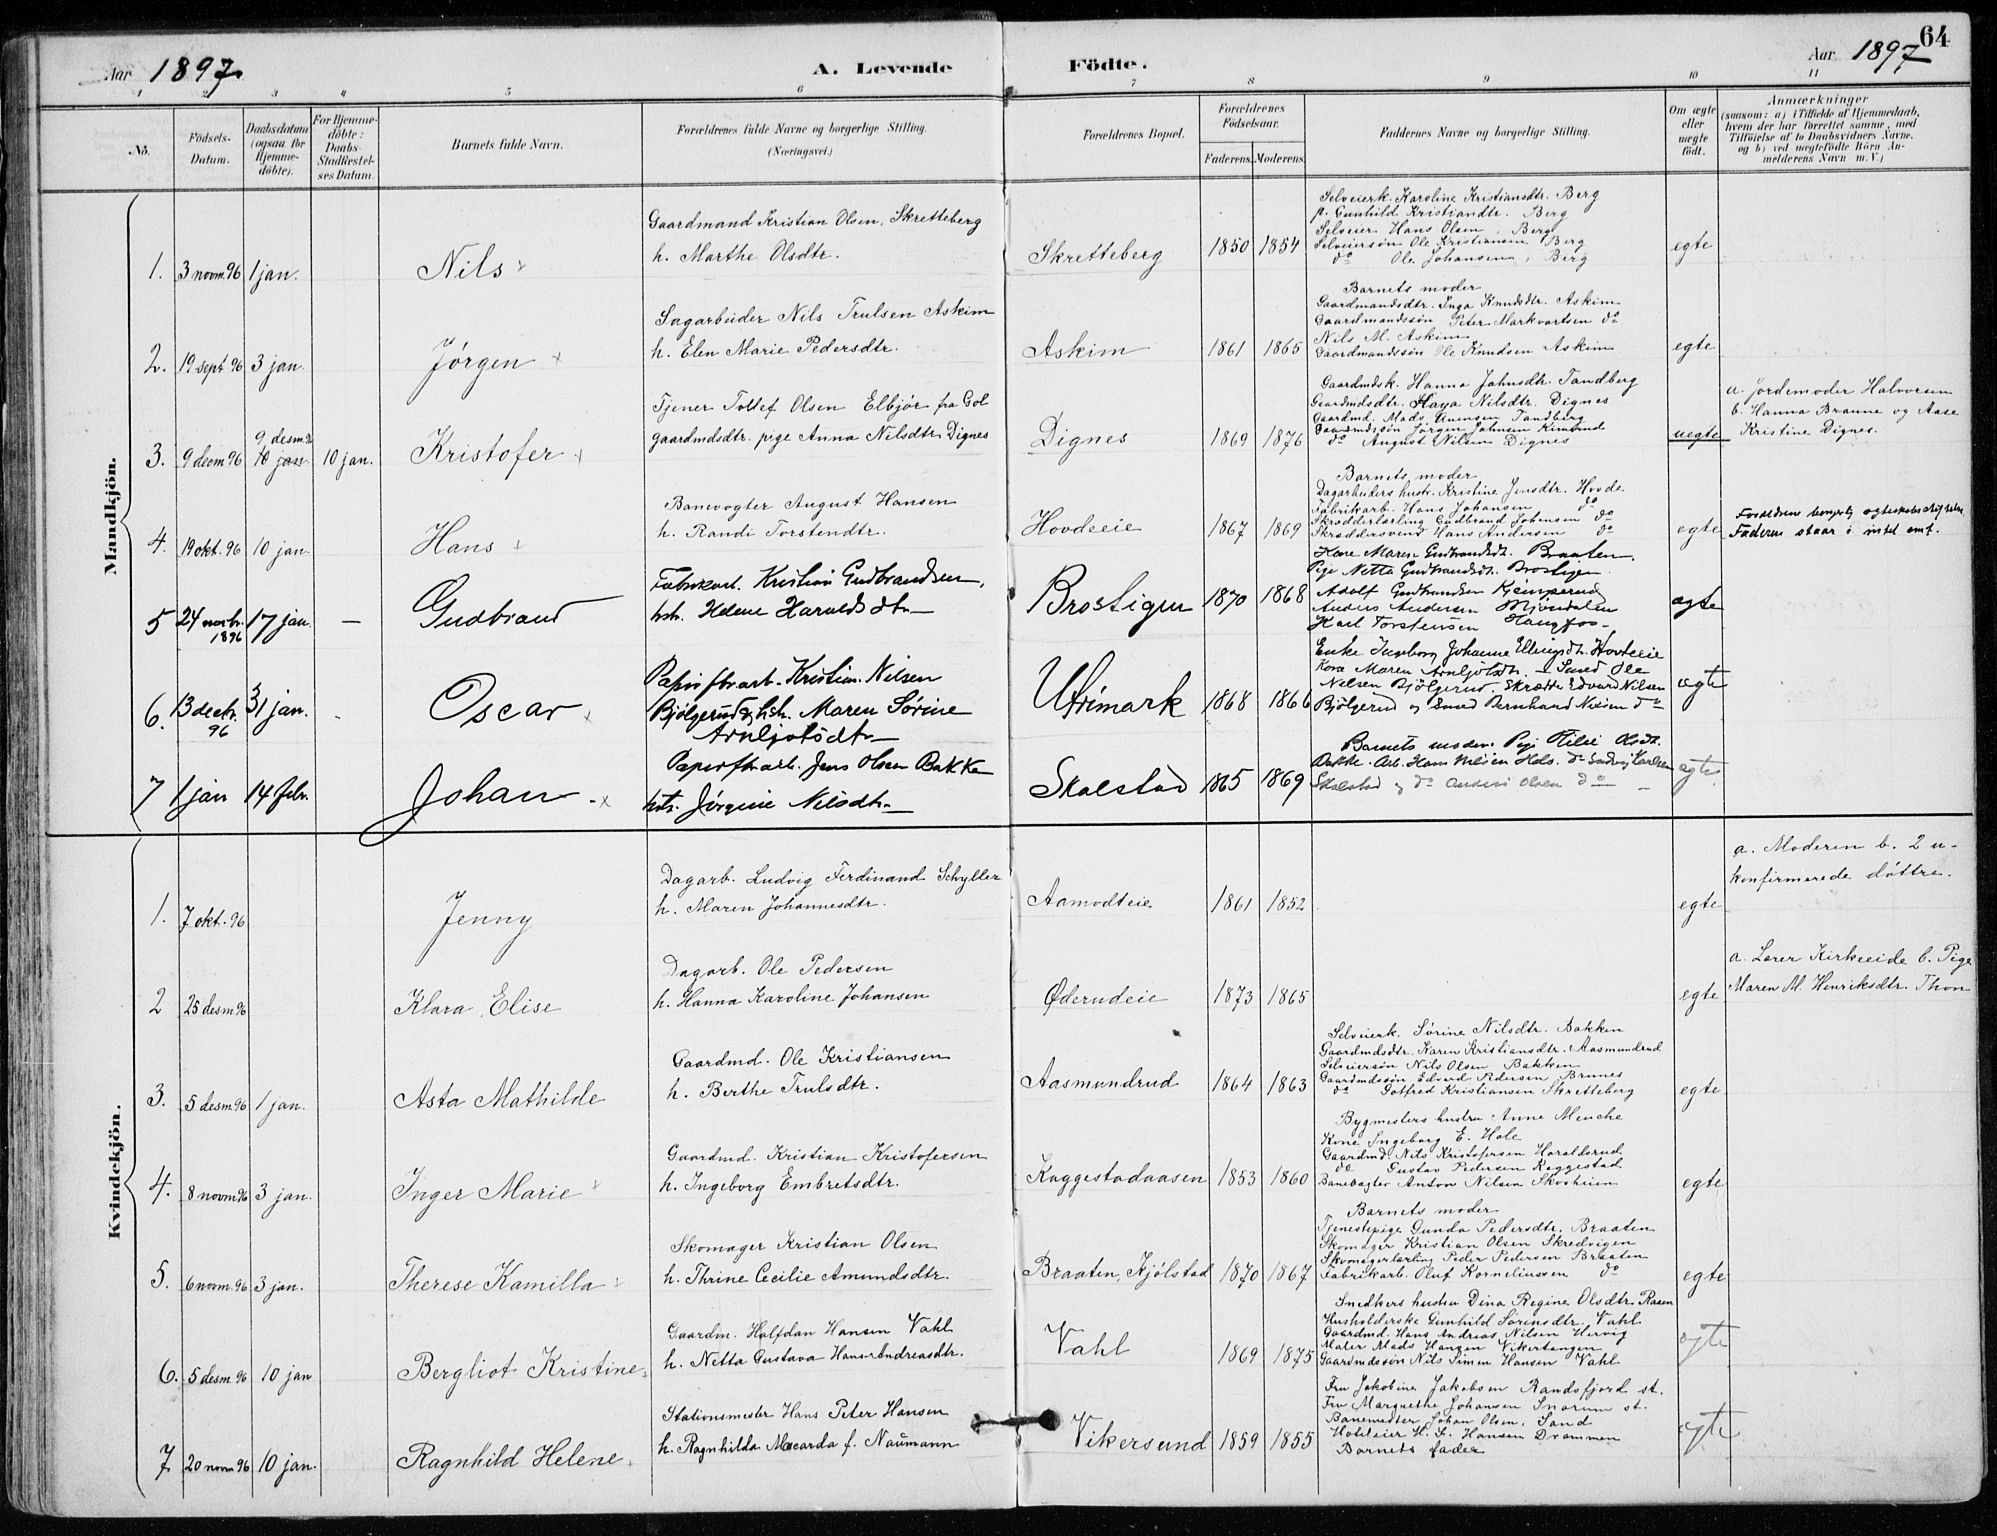 64
Aar 1897.
A. Levende
Födte.
Aar 1897
1 2 3 4 5 6 7 8 9 10 11
No.
Födsels-Datum.
Daabsdatum (ogsaa for Hjemme-döbte).
For Hjemme-döbte: Daabs-Stadfæstel-ses Datum.
Barnets fulde Navn.
Forældrenes fulde Navne og borgerlige Stilling.
(Næringsvei.)
Forældrenes Bopæl.
Forældrenes Födselsaar.
Faderens. Moderens.
Faddernes Navne og borgerlige Stilling.
Om ægte eller uægte födt.
Anmærkninger
(saasom: a) i Tilfælde af Hjemmedaab,
hvem der har forrettet samme, med
Tilföielse af to Daabsvidners Navne.
og b) ved uægtefödte Börn An-
melderens Navn m. V.)
Mandkjön.
Gaardmand Kristian Olsen, Skretteberg
h. Marthe Olsdtr.
1. 3 novm 96 1 jan. Nils
Skretteberg 1850 1854
Selveierk. Karoline Kristiansdtr. Berg
p. Gunhild Kristiandtr. Berg
Selveier Hans Olsen, Berg
Selveiersøn Ole Kristiansen Berg
do Ole Johansen, Berg
egte
Sagarbeider Nils Trulsen Askim
h. Elen Marie Pedersdtr.
2. 19 sept 96 3 jan. Jørgen
Askim 1861 1865
Barnets moder
Gaardmandsdtr. Inga Knudsdtr. Askim
Gaardmandssøn Peter Markvartsen do
Nils M. Askim
Gaardmandssøn Ole Knudsen Askim
egte
Tjener Tollef Olsen Elbjør fra Gol
gaardmdsdtr. pige Anna Nilsdtr. Dignes
3. 9 desm 96 9 desm. 96 10 jan. 10 jan. Kristofer
Dignes 1869 1876
Gaardmdsk. Hanna Jahnsdtr. Tandberg
Gaardmdsdtr. Haya Nilsdtr. Dignes
Gaardmd. Mads Tandberg
Gaardmdssøn Jørgen Johnsen
do August Nilsen Dignes
uegte
a. Jordemoder Halvorsen
b. Hanna Braune og Aase
Kristine Dignes.
Banevogter August Hansen
h. Randi Torstendtr.
4. 19 okt. 96 10 jan. Hans
Hovdeeie 1867 1869
Barnets moder
Dagarbeiders hustr. Kristine Jensdtr. Hovde
Fabrikarb. Hans Johansen do
Skrædderlærling Gudbrand Johnsen do
Skræddersvend Hans Andersen do
egte
Faderen staar i intet amf.
Fabrikarb. Kristian Gudbrandsen,
hstr. Helene Haraldsdtr.
5 24 novbr. 1896 17 jan. — Gudbrand
Brostigen 1870 1868
Kone Maren Gudbrandsdt. Braaten
Pige Netta Gudbrandsdt. Brostigen
Adolf Gudbrandsen Kjemperud
Anders Andersen Mjøndalen
Karl Torstensen Haugfos
ægte
Papirfbrarb. Kristian Nilsen
Bjølgerud og hstr. Maren Sørine
Arnljotsdtr.
6. 13 decbr. 96 31 jan. Oscar
Utrimark 1868 1866
Enke Ingeborg Johanne Ellingsdt. Hovdeeie
Kone Maren Arnljotsdtr. Smed Ole
Nelsen Bjölgerud. Skrædder Edvard Nilsen
Bjölgerud og Smed Bernhard Nilsen do
ægte
Papirfbrarb. Jens Olsen Bakke
hstr. Jørgine Nilsdtr.
7 1 jan 14 febr. Johan
Skalstad 1865 1869
Barnets moder. Pige Olsdt.
Bakke. Arb. Hans Nilsen do Ludvig Karlsen
Skalstad og do Anders Olsen do
egte
Kvindekjön.
Dagarb. Ludvig Ferdinand Schyller
h. Maren Johannesdtr.
1. 7 okt. 96 Jenny
Aamodteie 1861 1852
egte
a. Moderen b. 2 u-
konfirmerede døttre.
Dagarb. Ole Pedersen
h. Hanna Karoline Johansen
2 25 desm 96 Klara Elise
Øderudeie 1873 1865
egte
a. Lærer Kirkeeide b. Pige
Maren M. Henriksdtr. Thon
Gaardmd. Ole Kristiansen
h. Berthe Trulsdtr.
3. 5 desm 96 1 jan. Asta Mathilde
Aasmundrud 1864 1863
Selveierk. Sørine Nilsdtr. Bakken
Gaardmdsdtr. Karen Kristiansdtr. Aasmundrud
Selveiersøn Nils Olsen Bakken
Gaardmdssøn Edvard Pedersen Brunes
do Gotfred Kristiansen Skretteberg
egte
Gaardmd. Kristian Kristofersen
h. Ingeborg Embretsdtr.
4. 8 novm 96 3 jan. Inger Marie
Kaggestadaasen 1853 1860
Bygmesters hustru Anne Menche
Kone Ingeborg E. Hole
Gaardmd. Nils Kristofersen Haraldsrud
do Gustav Pedersen Kaggestad
Banevagter Anton Nilsen Skovheim
egte
Skomager Kristian Olsen
h. Thrine Cecilie Amundsdtr.
5. 6 novm 96 3 jan. Therese Kamilla
Braaten, Hjølstad 1870 1867
Barnets moder
Tjenestepige Gunda Pedersdtr. Braaten
Skomager Kristian Olsen Skredvigen
Skomagerlærling Peder Pedersen Braaten
Fabrikarb. Oluf Korneliussen do
egte
Gaardm. Halfdan Hansen Vahl
h. Netta Gustava Hans-Andreasdtr.
6. 5 desm. 96 10 jan Bergliot Kristine
Vahl 1869 1875
Snedkers hustru Dina Regine Olsdtr. Raaen
Husholderske Gunhild Sørensdtr. Vahl
Gaardmd. Hans Andreas Nilsen Hervig
Maler Mads Hansen Vikertangen
Gaardmdssøn Nils Simen Hansen Vahl
egte
Stationsmester Hans Peter Hansen
h. Ragnhilda Macarda f. Naumann
7. 20 novm 96 10 jan. Ragnhild Helene
Vikersund 1859 1855
Fru Jakobine Jakobsen Randsfjord st.
Fru Margrethe Johansen Snarum st.
Banemester Johan Olsen, Sand
Hoteleier H. L. Hansen Drammen
Barnets fader
egte